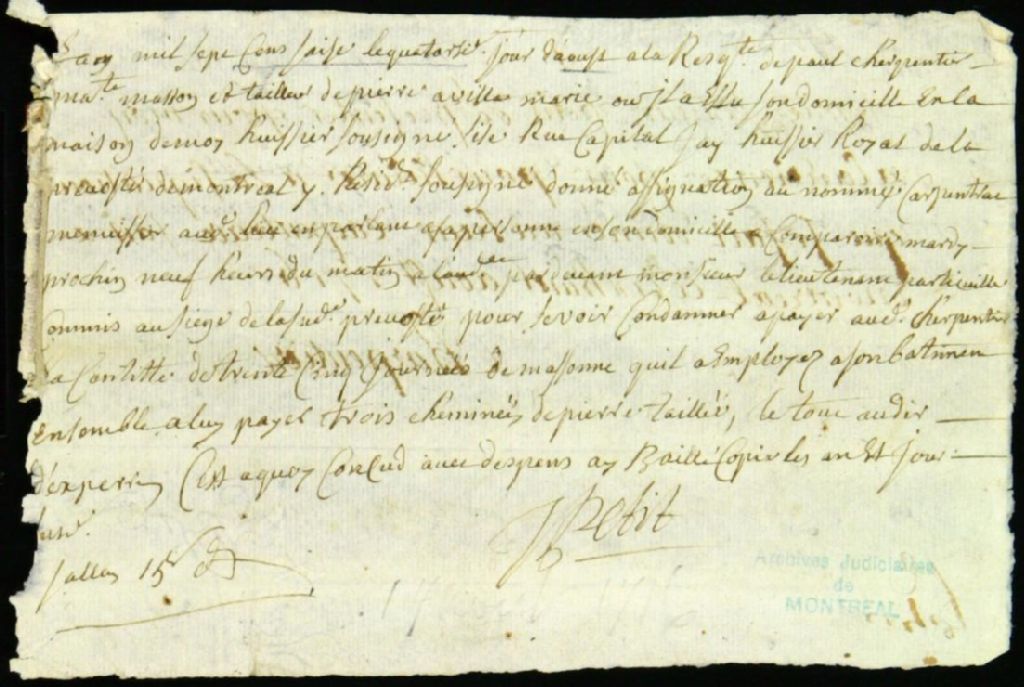 Lan mil sept Cens saise le quatorsie. Jour d'aoust a la Resq.te de paul cherpentier
ma.te masson et tailleur de pierre a ville marie ou il a Eslu son domicille En la
maison de moy huissier sousigne sise Rue Capital Jay huissier Royal de la
prevosté de montreal y Resid.t sousigne donne assignation au nommé Carpentras
menuissier aud. lieu en parlant a sa personne en son domicille a Comparoir mardy
prochin neuf heurs du matin par devant monsieur le lieutenant particuille
Commis au siege de lasud. prevosté pour se voir Condanner a payer aud. cherpentier
La Cantitte de trente Cinq Journeés de massonne quil a Employez a son batimen
Ensemble a luy payer trois cheminéés de pierre taillée, le tout au dir
d'experts Cest a quoy Conclud avec despens ay Baillé Copie les an Et Jour
susd.
JPetit
sallair 15s
Archives Judiciaires
de
MONTREAL